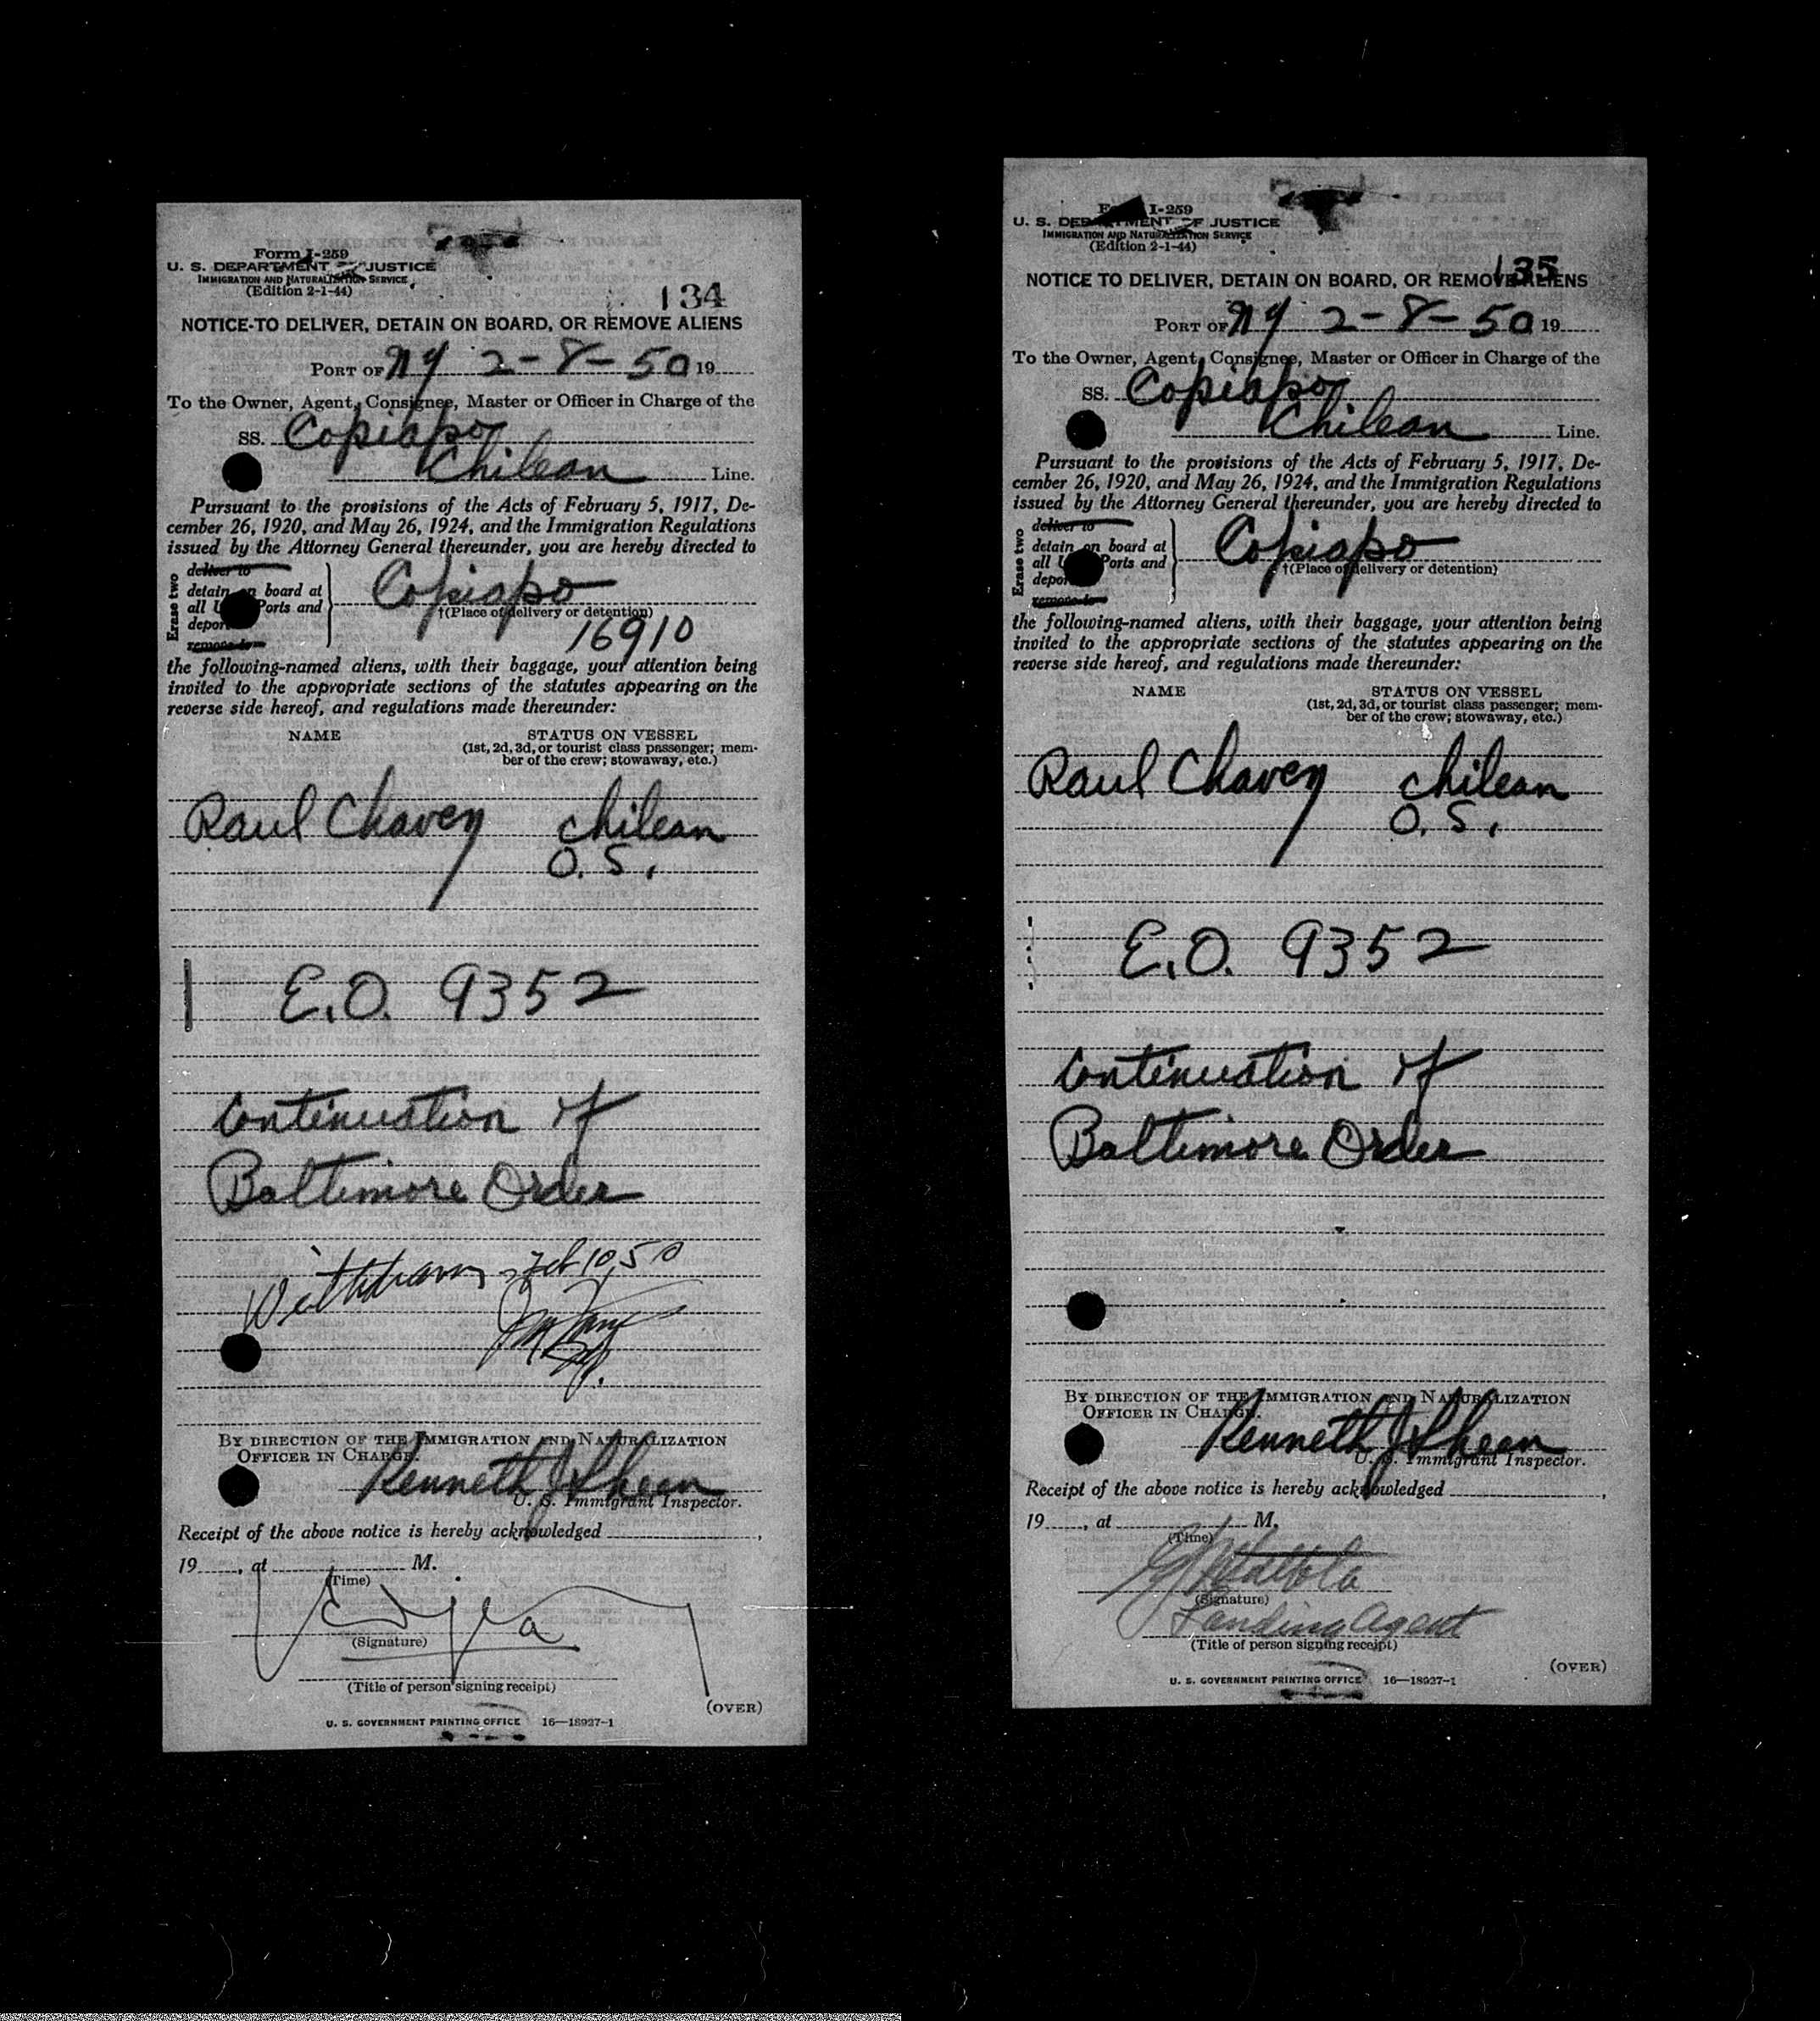 Form I-259
U. S. DEPARTMENT OF JUSTICE
IMMIGRATION AND NATURALIZATION SERVICE
(Edition 2-1-44)
134
NOTICE TO DELIVER, DETAIN ON BOARD, OR REMOVE ALIENS
PORT OF NY 2-8-50 19
To the Owner, Agent, Consignee, Master or Officer in Charge of the
SS. Copiapo
Chilean Line.
Pursuant to the provisions of the Acts of February 5, 1917, De-
cember 26, 1920, and May 26, 1924, and the Immigration Regulations
issued by the Attorney General thereunder, you are hereby directed to
Erase two
deliver to
detain on board at
all U Ports and
depor
remove to
Copiapo
†(Place of delivery or detention)
16910
the following-named aliens, with their baggage, your attention being
invited to the appropriate sections of the statutes appearing on the
reverse side hereof, and regulations made thereunder:
NAME STATUS ON VESSEL
(1st, 2d, 3d, or tourist class passenger; mem-
ber of the crew; stowaway, etc.)
Raul Chavez Chilean
O. S.
E.O. 9352
Continuation of
Baltimore Order
Withdrawn Feb 10, 50
BY DIRECTION OF THE IMMIGRATION AND NATURALIZATION
OFFICER IN CHARGE.
Kenneth J Sheen
U. S. Immigrant Inspector.
Receipt of the above notice is hereby acknowledged ,
19 , at M.
(Time)
(Signature)
(Title of person signing receipt)
(OVER)
U. S. GOVERNMENT PRINTING OFFICE 16—18927-1
Form I-259
U. S. DEPARTMENT OF JUSTICE
IMMIGRATION AND NATURALIZATION SERVICE
(Edition 2-1-44)
135
NOTICE TO DELIVER, DETAIN ON BOARD, OR REMOVE ALIENS
PORT OF NY 2-8-50 19
To the Owner, Agent, Consignee, Master or Officer in Charge of the
SS. Copiapo
Chilean Line.
Pursuant to the provisions of the Acts of February 5, 1917, De-
cember 26, 1920, and May 26, 1924, and the Immigration Regulations
issued by the Attorney General thereunder, you are hereby directed to
Erase two
deliver to
detain on board at
all U Ports and
depor
remove to
Copiapo
†(Place of delivery or detention)
the following-named aliens, with their baggage, your attention being
invited to the appropriate sections of the statutes appearing on the
reverse side hereof, and regulations made thereunder:
NAME STATUS ON VESSEL
(1st, 2d, 3d, or tourist class passenger; mem-
ber of the crew; stowaway, etc.)
Raul Chavez Chilean
O. S.
E.O. 9352
Continuation of
Baltimore Order
BY DIRECTION OF THE IMMIGRATION AND NATURALIZATION
OFFICER IN CHARGE.
Kenneth J Sheen
U. S. Immigrant Inspector.
Receipt of the above notice is hereby acknowledged ,
19 , at M.
(Time)
(Signature)
Landing Agent
(Title of person signing receipt)
(OVER)
U. S. GOVERNMENT PRINTING OFFICE 16—18927-1